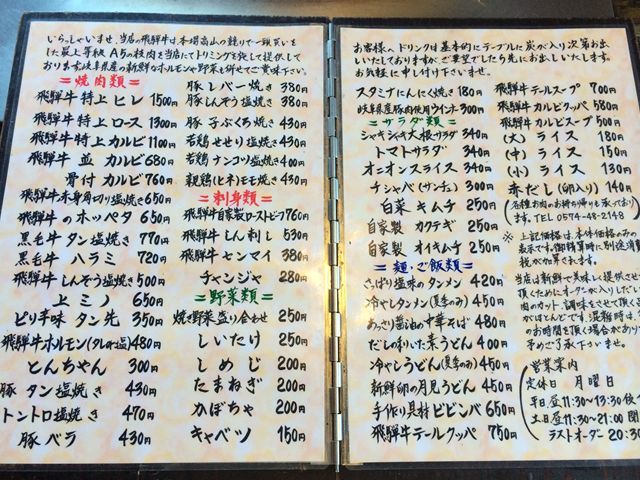 いらっしゃいませ、当店の飛騨牛は、本場高山の競りで一頭買いを
した最上等級 A5の枝肉を当店にてトリミングをして提供して
おります。岐阜県産の新鮮なホルモンや野菜も併せてご賞味下さい。
＝焼肉類＝
飛騨牛特上ヒレ 1500円
飛騨牛特上ロース 1300円
飛騨牛特上カルビ 1100円
飛騨牛 並 カルビ 680円
骨付カルビ 760円
飛騨牛赤身角切り塩焼き 650円
飛騨牛のホッペタ 650円
黒毛牛 タン塩焼き 770円
黒毛牛 ハラミ 720円
飛騨牛しんぞう塩焼き 500円
上ミノ 650円
ピリ辛味 タン先 350円
飛騨牛ホルモン(タレor塩) 480円
とんちゃん 300円
豚タン塩焼き 430円
トントロ塩焼き 470円
豚バラ 430円
豚レバー焼き 380円
豚しんぞう塩焼き 380円
豚子ぶくろ焼き 430円
若鶏せせり塩焼き 430円
若鶏ナンコツ塩焼き 400円
親鶏(ヒネ)モモ焼き 430円
＝刺身類＝
飛騨牛自家製ローストビーフ 760円
飛騨牛しん刺し 530円
飛騨牛センマイ 380円
チャンジャ 280円
＝野菜類＝
焼き野菜盛り合わせ 250円
しいたけ 250円
しめじ 200円
たまねぎ 200円
かぼちゃ 200円
キャベツ 150円
お客様へドリンクは基本的にテーブルに炭が入り次第お出し
いたしておりますが、ご要望でしたら先にお出しいたします。
お気軽に申し付け下さいませ。
スタミナにんにく焼き 180円
岐阜県産豚肉使用ウインナー 300円
＝サラダ類＝
シャキシャキ大根サラダ 340円
トマトサラダ 340円
オニオンスライス 340円
チシャバ(サンチュ) 300円
白菜キムチ 250円
自家製 カクテギ 250円
自家製 オイキムチ 250円
＝麺・ご飯類＝
さっぱり塩味のタンメン 420円
冷やしタンメン(夏季のみ) 450円
あっさり醤油の中華そば 480円
だしの利いた素うどん 400円
冷やしうどん(夏季のみ) 450円
新鮮卵の月見うどん 450円
手作り具材ビビンバ 650円
飛騨牛テールクッパ 750円
飛騨牛テールスープ 700円
飛騨牛カルビクッパ 580円
飛騨牛カルビスープ 500円
(大) ライス 180円
(中) ライス 150円
(小) ライス 130円
赤だし(卵入り) 140円
各種お肉のお持ち帰りも承っており
ます。TEL 0574-48-2148
※上記価格は、本体価格のみの
表示です。御精算時に別途消費
税が加算されます。
当店は新鮮で美味しく提供させて
頂くためにオーダーが入りしだい
肉のカット、調味をさせて頂く
がほとんどです。混雑時は、
のお時間を頂く場合があり
予めご了承下さいませ。
営業案内
定休日 月曜日
平日昼 11:30~13:30
土日昼 11:30~21:00
ラストオーダー 20:30